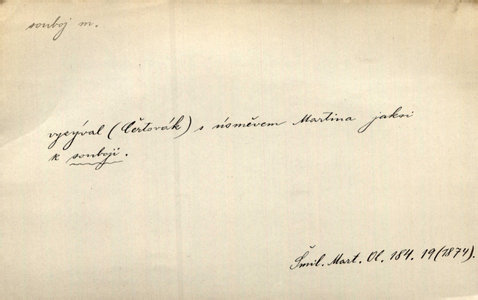 souboj m.
vyzýval (Čertovák) s úsměvem Martina jaksi
k souboji.
Šmil. Mart. Ol. 184. 19 (1874).